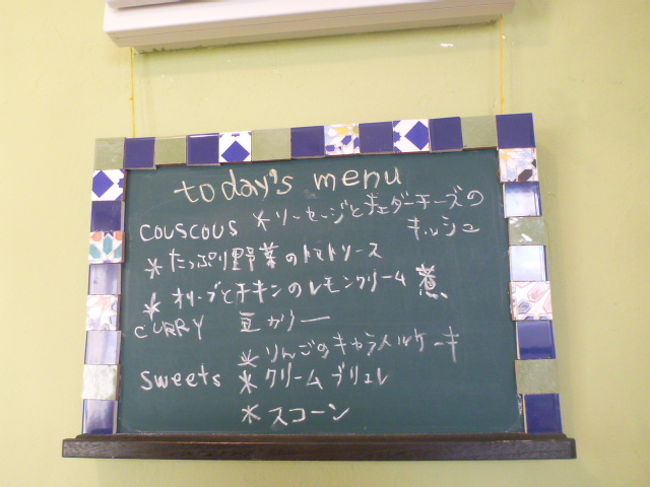 today's menu
COUSCOUS * ソーセージとチェダーチーズの
キッシュ
* たっぷり野菜のトマトソース
* オリーブとチキンのレモンクリーム煮
CURRY 豆カリー
* りんごのキャラメルケーキ
sweets * クリームブリュレ
* スコーン